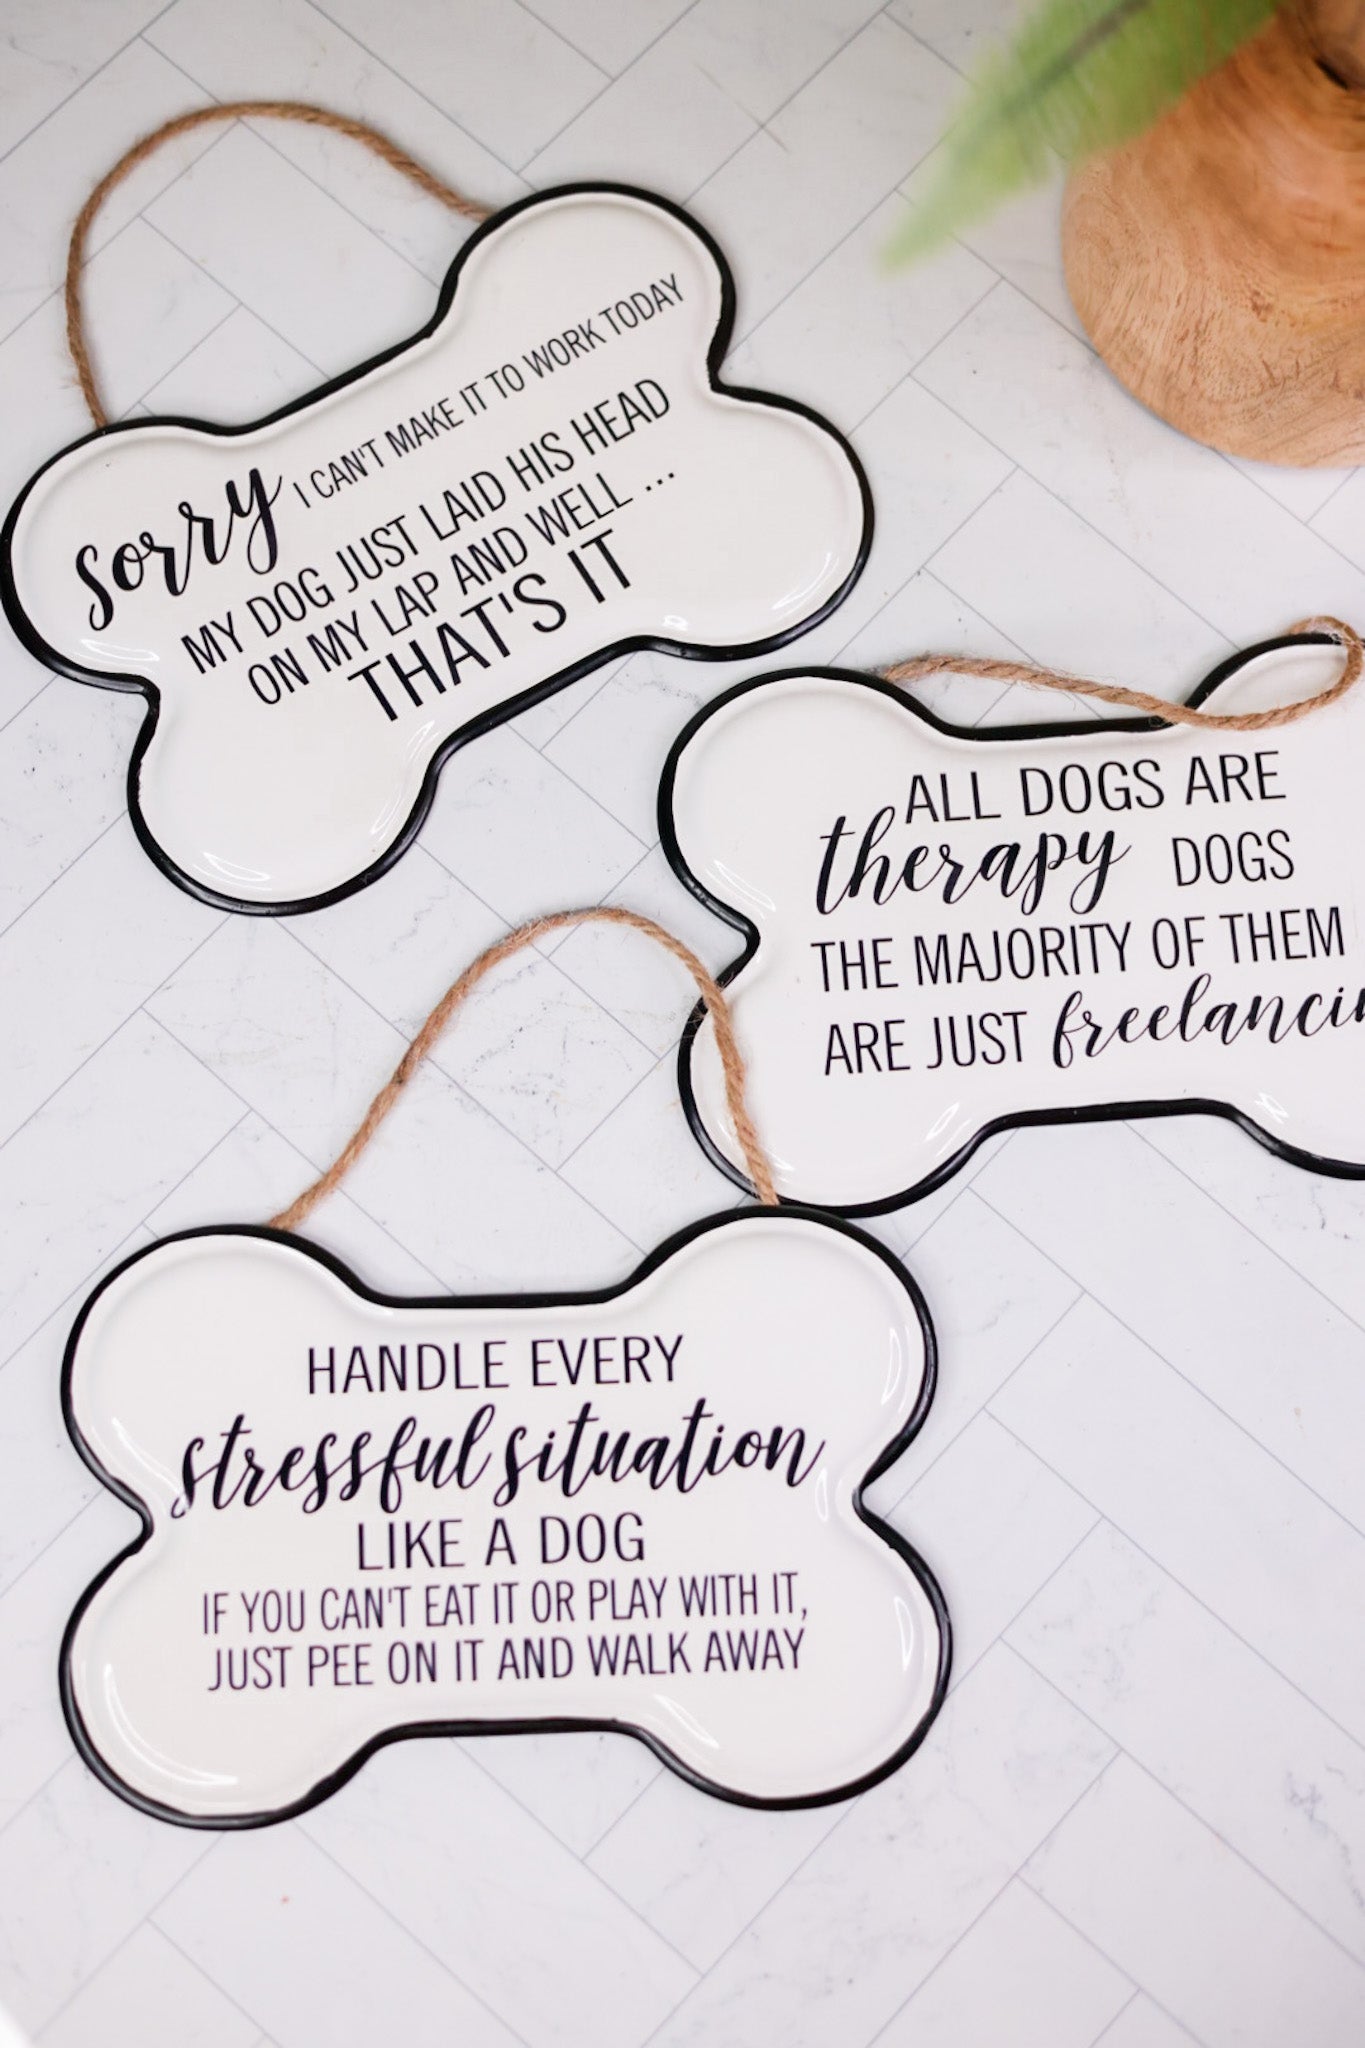 sorry I CAN'T MAKE IT TO WORK TODAY
MY DOG JUST LAID HIS HEAD
ON MY LAP AND WELL ...
THAT'S IT
ALL DOGS ARE
therapy DOGS
THE MAJORITY OF THEM
ARE JUST freelancin
HANDLE EVERY
stressful situation
LIKE A DOG
IF YOU CAN'T EAT IT OR PLAY WITH IT,
JUST PEE ON IT AND WALK AWAY